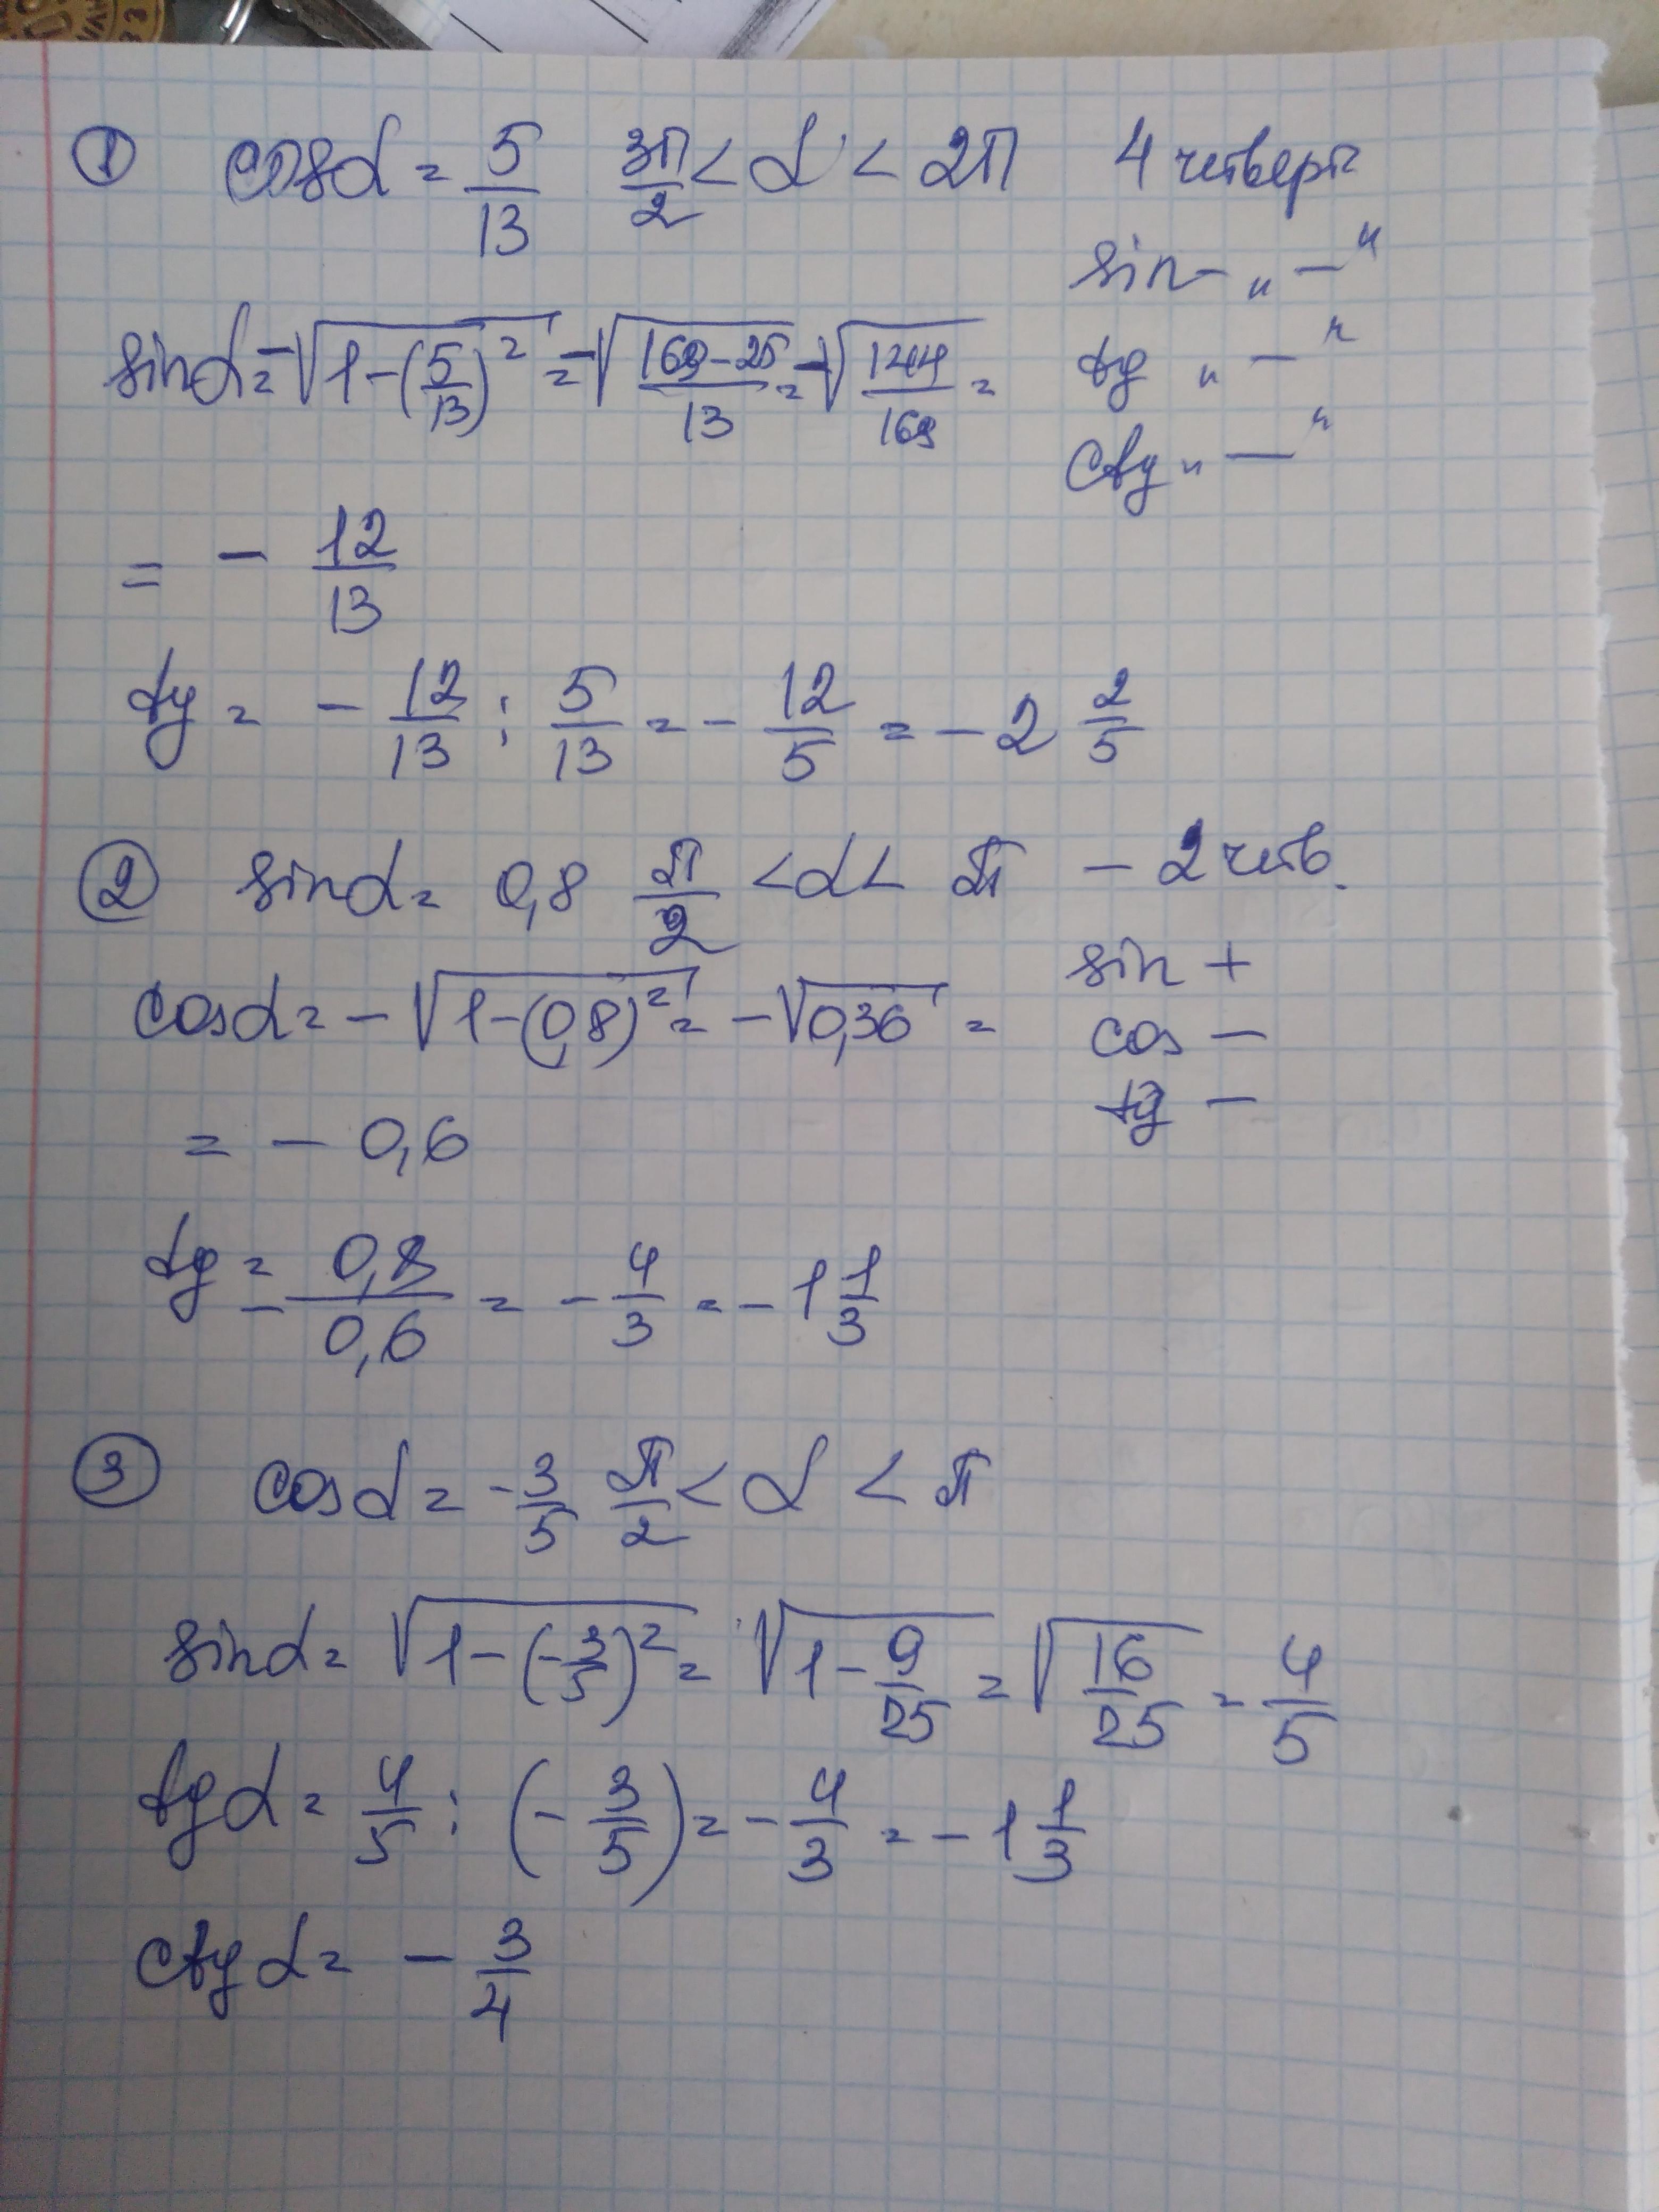 ① cosα = 5/13 3π/2 < α < 2π 4 четверть
sin - „ — "
sinα = -√(1-(5/13)²) = -√((169-25)/13) = -√(144/169) =
tg „ — "
ctg „ — "
= - 12/13
tg = - 12/13 : 5/13 = - 12/5 = - 2 2/5
② sinα = 0,8 π/2 < α < π - 2 четв.
sin +
cosα = - √(1-(0,8)²) = - √0,36 =
cos —
tg —
= - 0,6
tg = - 0,8/0,6 = - 4/3 = - 1 1/3
③ cosα = - 3/5 π/2 < α < π
sinα = √(1-(-3/5)²) = √(1- 9/25) = √(16/25) = 4/5
tgα = 4/5 : (- 3/5) = - 4/3 = - 1 1/3
ctgα = - 3/4